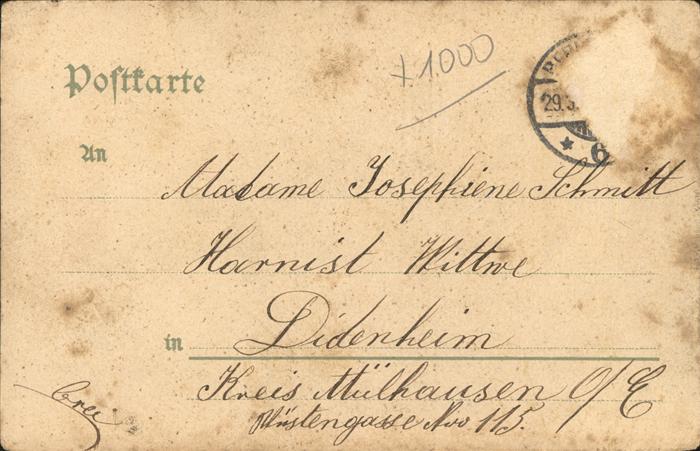 Postkarte
+1.000
29.3.
6
An
Madame Josephiene Schmitt
Harnist Wittwe
in Didenheim
Kreis Mülhausen O/E
No 115.